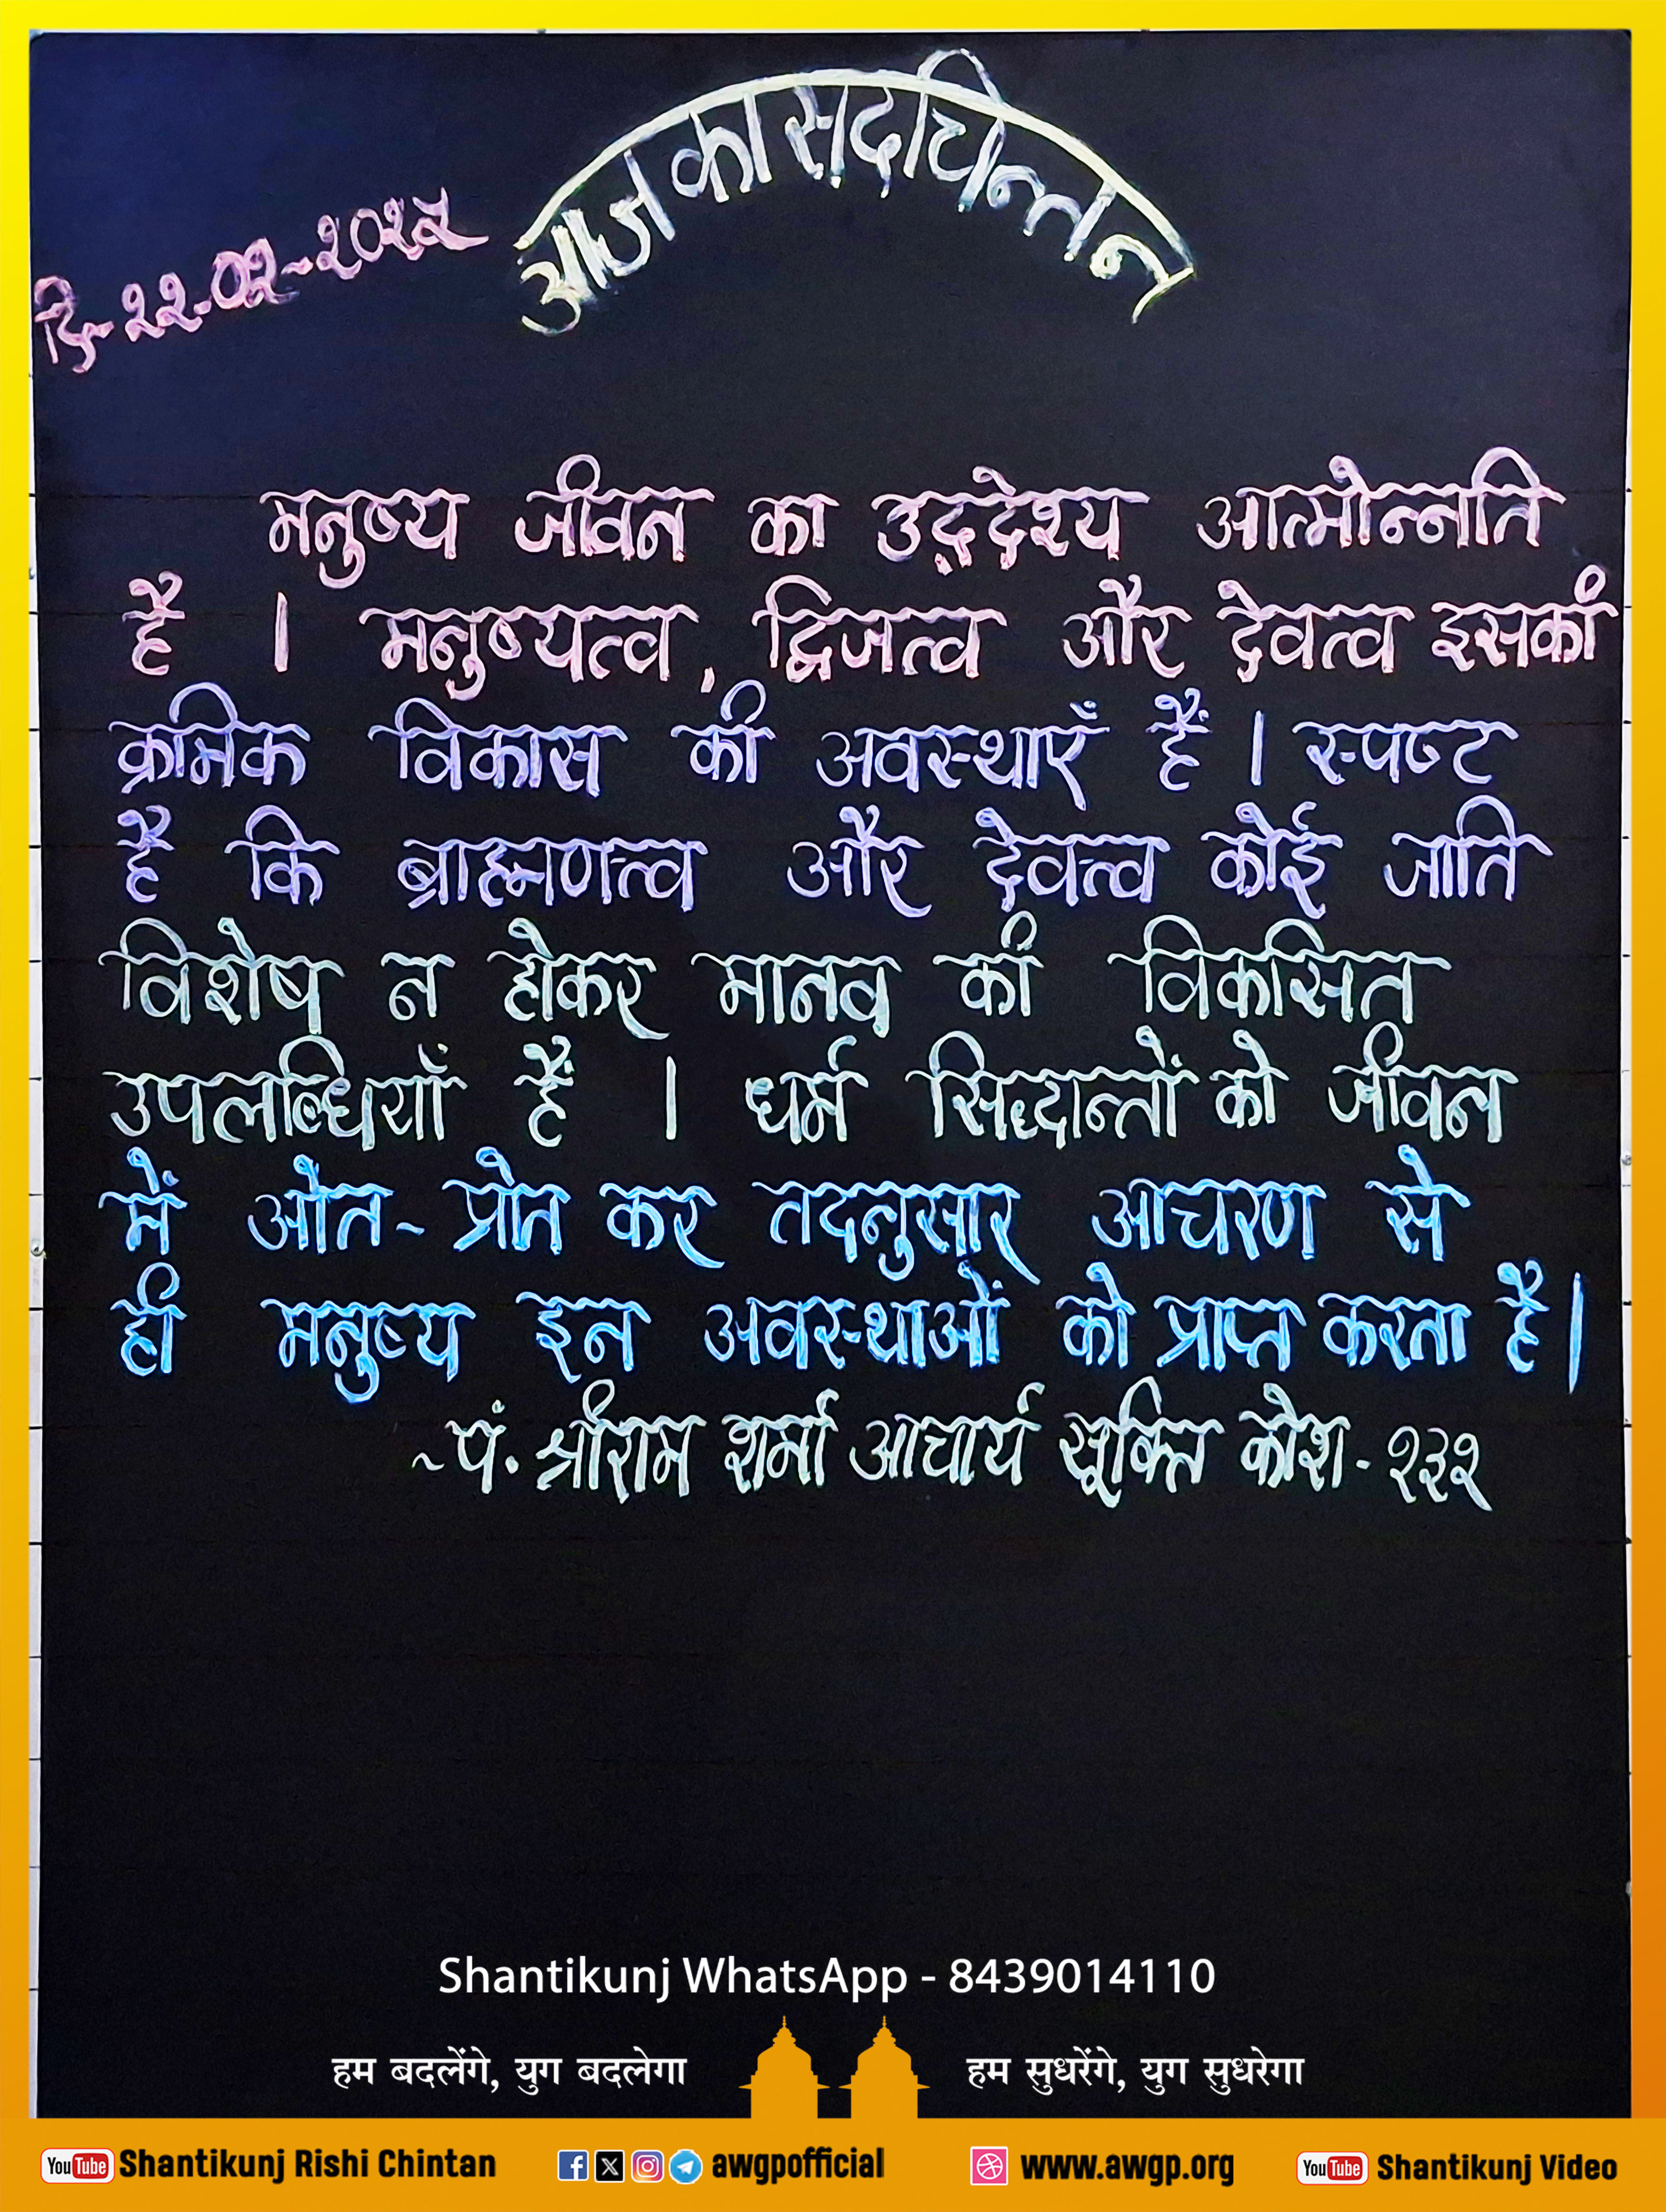 आज का सदचिन्तन
दि-२२-०२-२०२५
मनुष्य जीवन का उद्देश्य आत्मोन्नति
है । मनुष्यत्व, द्विजत्व और देवत्व इसकी
क्रमिक विकास की अवस्थाएँ हैं । स्पष्ट
है कि ब्राह्मणत्व और देवत्व कोई जाति
विशेष न होकर मानव की विकसित
उपलब्धियाँ हैं । धर्म सिद्धान्तों को जीवन
में ओत-प्रोत कर तदनुसार आचरण से
ही मनुष्य इन अवस्थाओं को प्राप्त करता है।
~पं. श्रीराम शर्मा आचार्य सूक्ति कोश - १३१
Shantikunj WhatsApp - 8439014110
हम बदलेंगे, युग बदलेगा हम सुधरेंगे, युग सुधरेगा
YouTube Shantikunj Rishi Chintan awgpofficial www.awgp.org YouTube Shantikunj Video